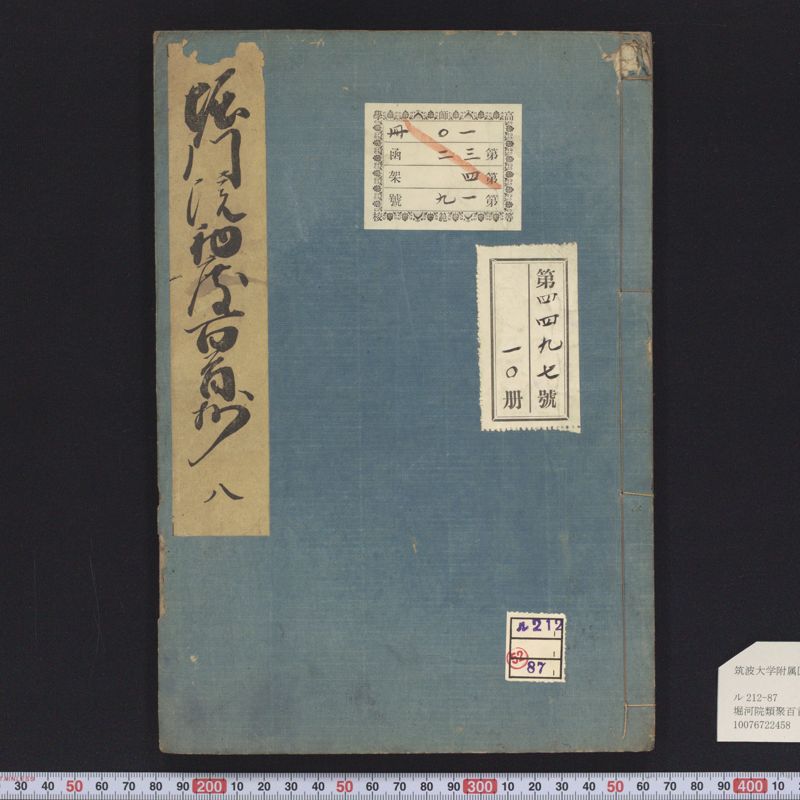 堀川院初度百首抄
八
高師學
一〇冊
第三二函
第四架
第一九號
等範校
第四四九七號
一〇册
ル212
52
87
筑波大学附属
ル 212-87
堀河院類聚百
10076722458
30 40 50 60 70 80 90 200 10 20 30 40 50 60 70 80 90 300 10 20 30 40 50 60 70 80 90 400 10